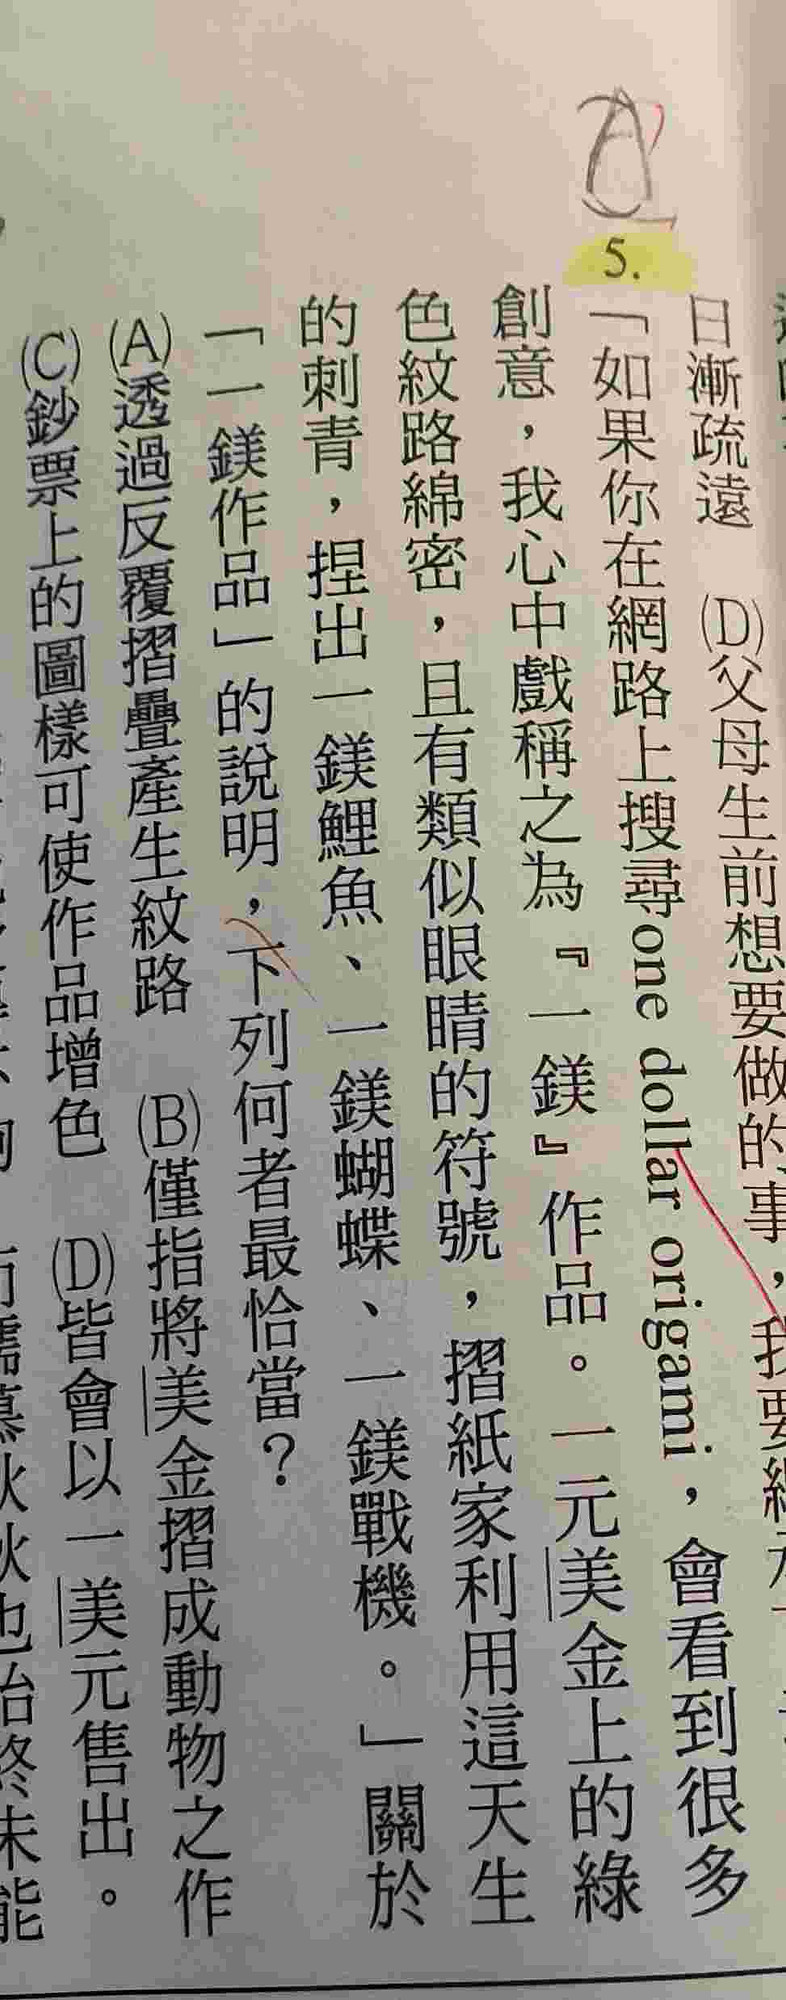 日漸疏遠　(D)父母生前想要做的事，我要
5.
「如果你在網路上搜尋one dollar origami，會看到很多
創意，我心中戲稱之為『一鎂』作品。一元美金上的綠
色紋路綿密，且有類似眼睛的符號，摺紙家利用這天生
的刺青，捏出一鎂鯉魚、一鎂蝴蝶、一鎂戰機。」關於
「一鎂作品」的說明，下列何者最恰當？
(A)透過反覆摺疊產生紋路　(B)僅指將美金摺成動物之作
(C)鈔票上的圖樣可使作品增色　(D)皆會以一美元售出。
也始終未能